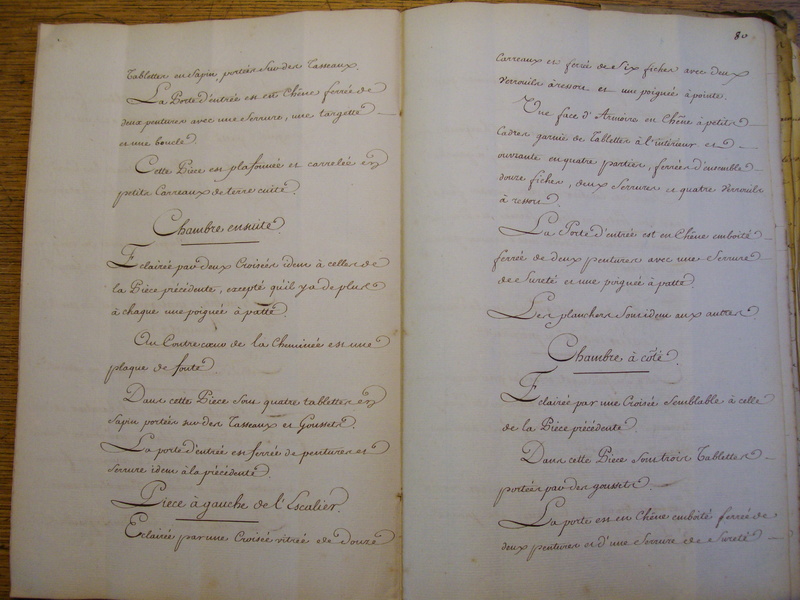 Tablettes en Sapin, portées Sur des Tasseaux.
La Porte d'entrée est en Chêne ferrée de
deux pentures avec une Serrure, une targette
et une boucle.
Cette Pièce est plafonnée et carrelée en
petits Carreaux de terre cuite.
Chambre ensuite.
Eclairée par deux Croisées idem à celles de
la Pièce précédente, excepté qu'il y a de plus
à chaque une poignée à patte.
Au Contrecœur de la Cheminée est une
plaque de fonte.
Dans cette Pièce sont quatre tablettes en
Sapin portées sur des Tasseaux et Goussets.
La porte d'entrée est ferrée de pentures et
Serrure idem à la précédente.
Pièce à gauche de l'Escalier.
Eclairée par une Croisée vitrée de douze
80
Carreaux et ferrée de Six fiches avec deux
Verrouils à ressort et un poignée à pointe.
Une face d'Armoire en Chêne à petits
Cadres garnie de Tablettes à l'intérieur et
ouvrante en quatre parties, ferrées d'ensemble
douze fiches, deux Serrures et quatre Verrouils
à ressort.
La Porte d'entrée est en Chêne emboîté
ferrée de deux pentures avec une Serrure
de Sureté et une poignée à patte.
Les planchers Sont idem aux autres
Chambre à côté.
Eclairée par une Croisée Semblable à celle
de la Pièce précédente.
Dans cette Pièce Sont trois Tablettes
portées par des goussets.
La porte est en Chêne emboîté ferrée de
deux pentures et d'une Serrure de Sureté